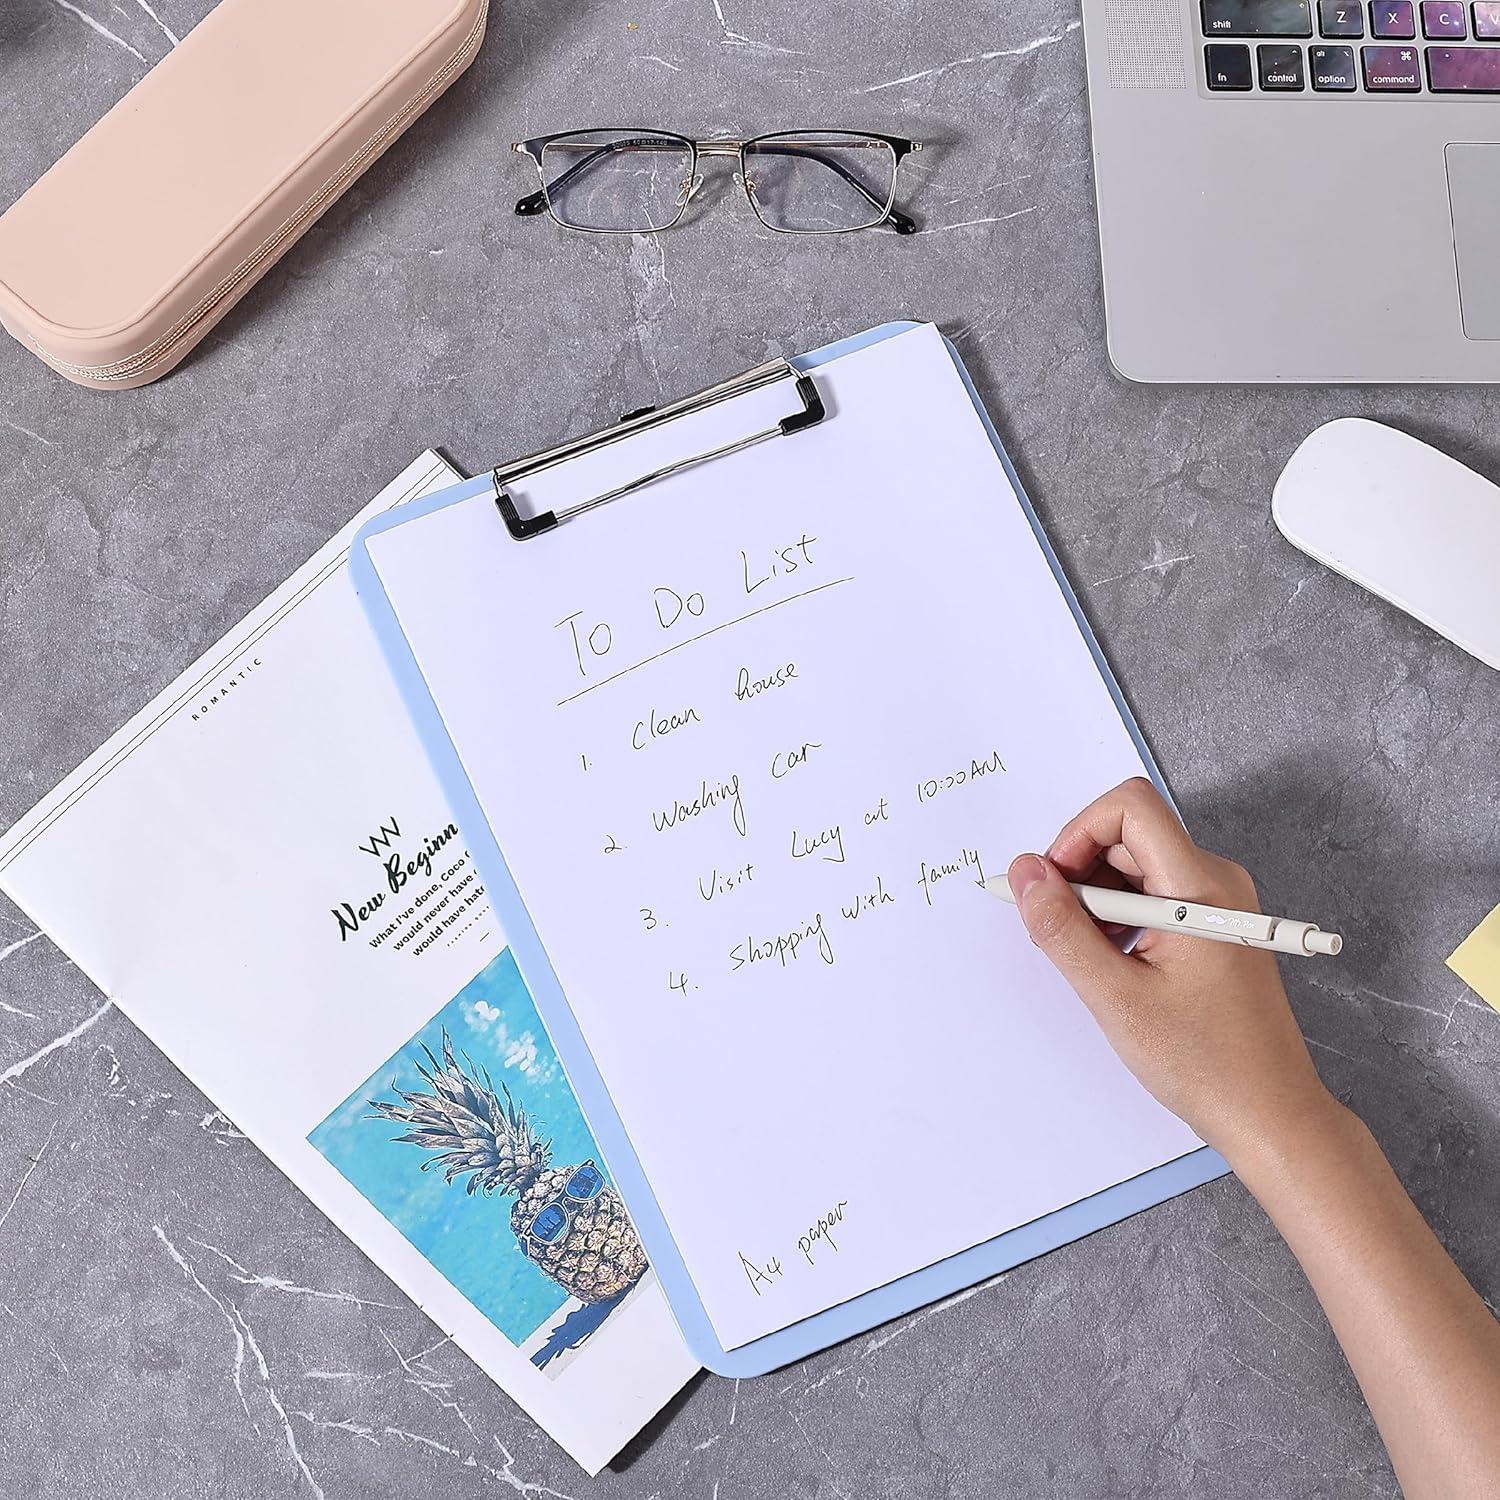 shift
Z
X
C
V
fn
control
alt
option
⌘
command
To Do List
1. Clean house
2. Washing car
3. Visit Lucy at 10:00AM
4. shopping with family
A4 paper
ROMANTIC
New Beginn
What I've done, Coco
would never have
would have hat